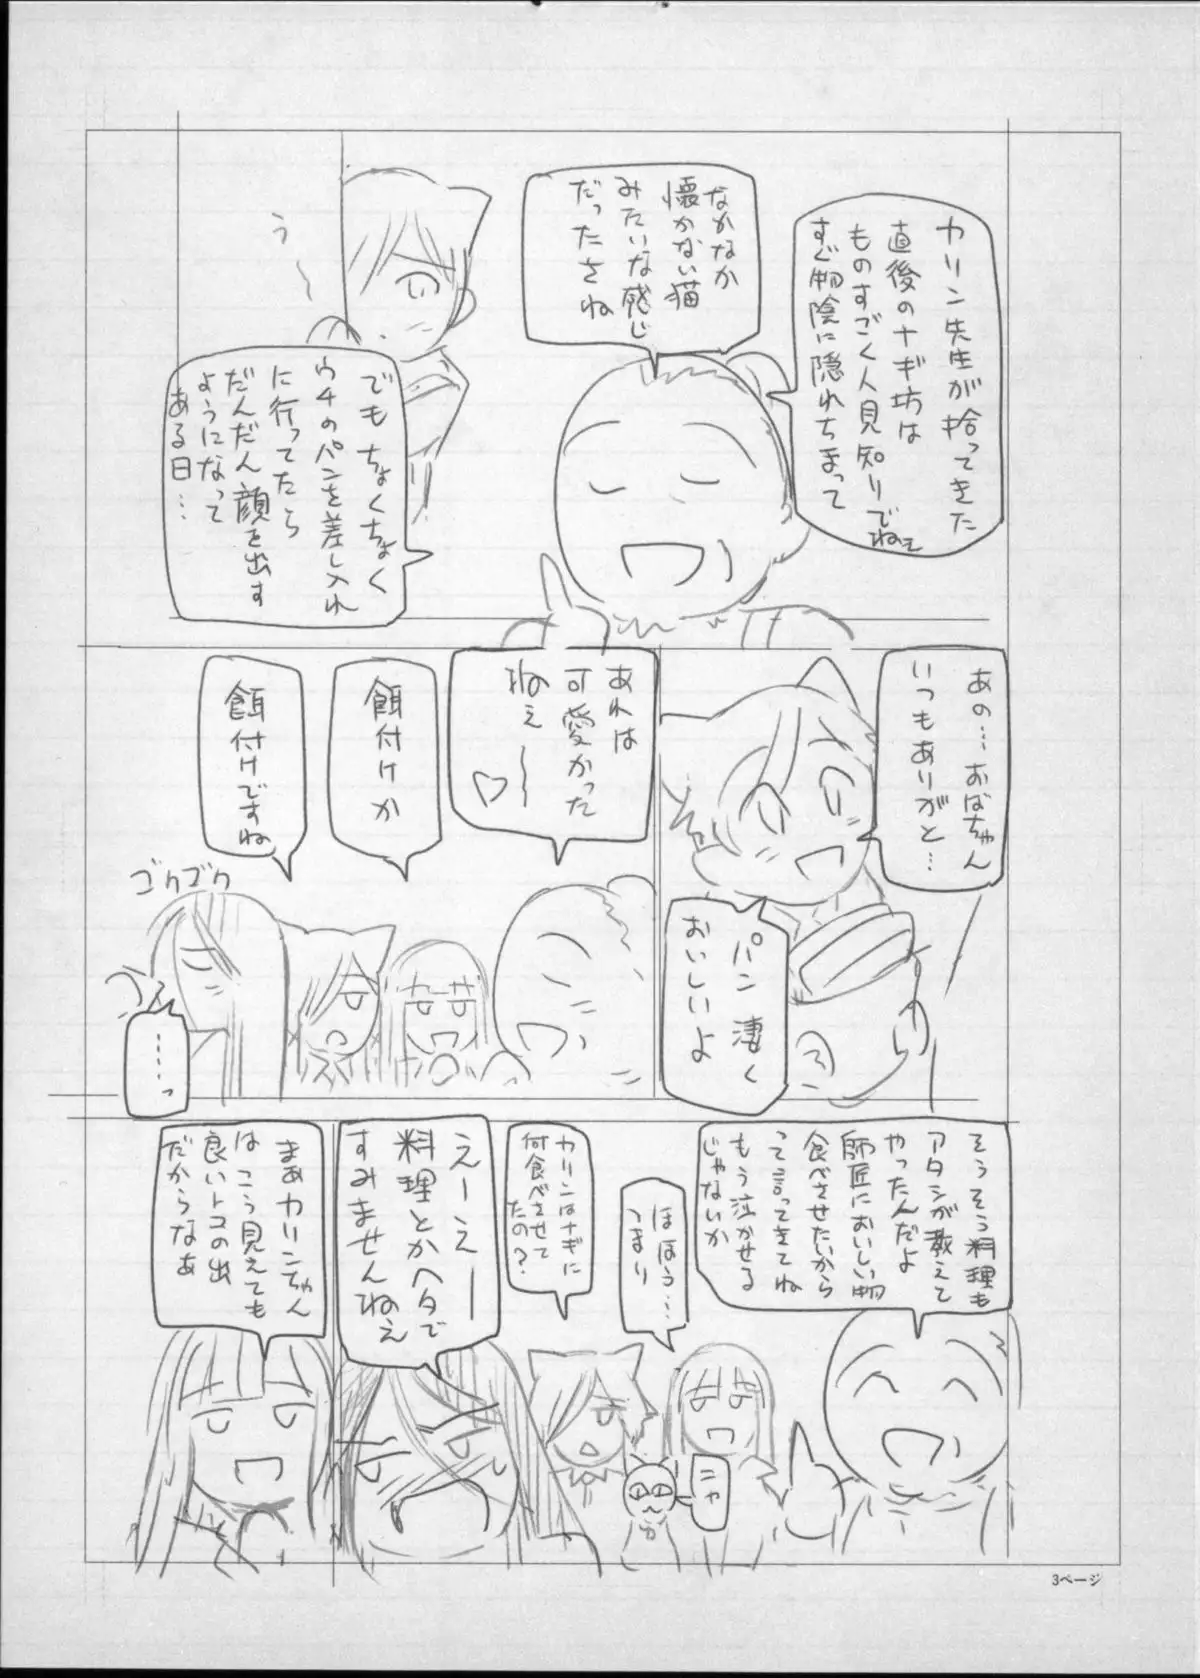 カリン先生が拾ってきた
直後のナギ坊は
ものすごく人見知りでねぇ
すぐ物陰に隠れちまって
なかなか
懐かない猫
みたいな感じ
だったさね
う～
でもちょくちょく
ウチのパンを差し入れ
に行ってたら
だんだん顔を出す
ようになって
ある日…
あの…おばちゃん
いつもありがと…
パン凄く
おいしいよ
あれは
可愛かった
ねぇ～～♡
餌付けか
餌付けですね
ゴクゴク
……っ
そうそう料理も
アタシが教えて
やったんだよ
師匠においしい物
食べさせたいから
って言ってきてね
もう泣かせる
じゃないか
ほほう…
つまり
ニャ
カリンはナギに
何食べさせて
たの？
えーえー
料理とかヘタで
すみませんねえ
まあカリンちゃん
はこう見えても
良いトコの出
だからなぁ
3ページ